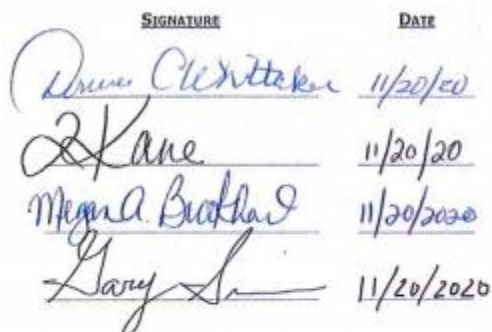 SIGNATURE DATE
C Whittaker 11/20/20
Kane 11/20/20
Megan A. 11/20/2020
Gary 11/20/2020